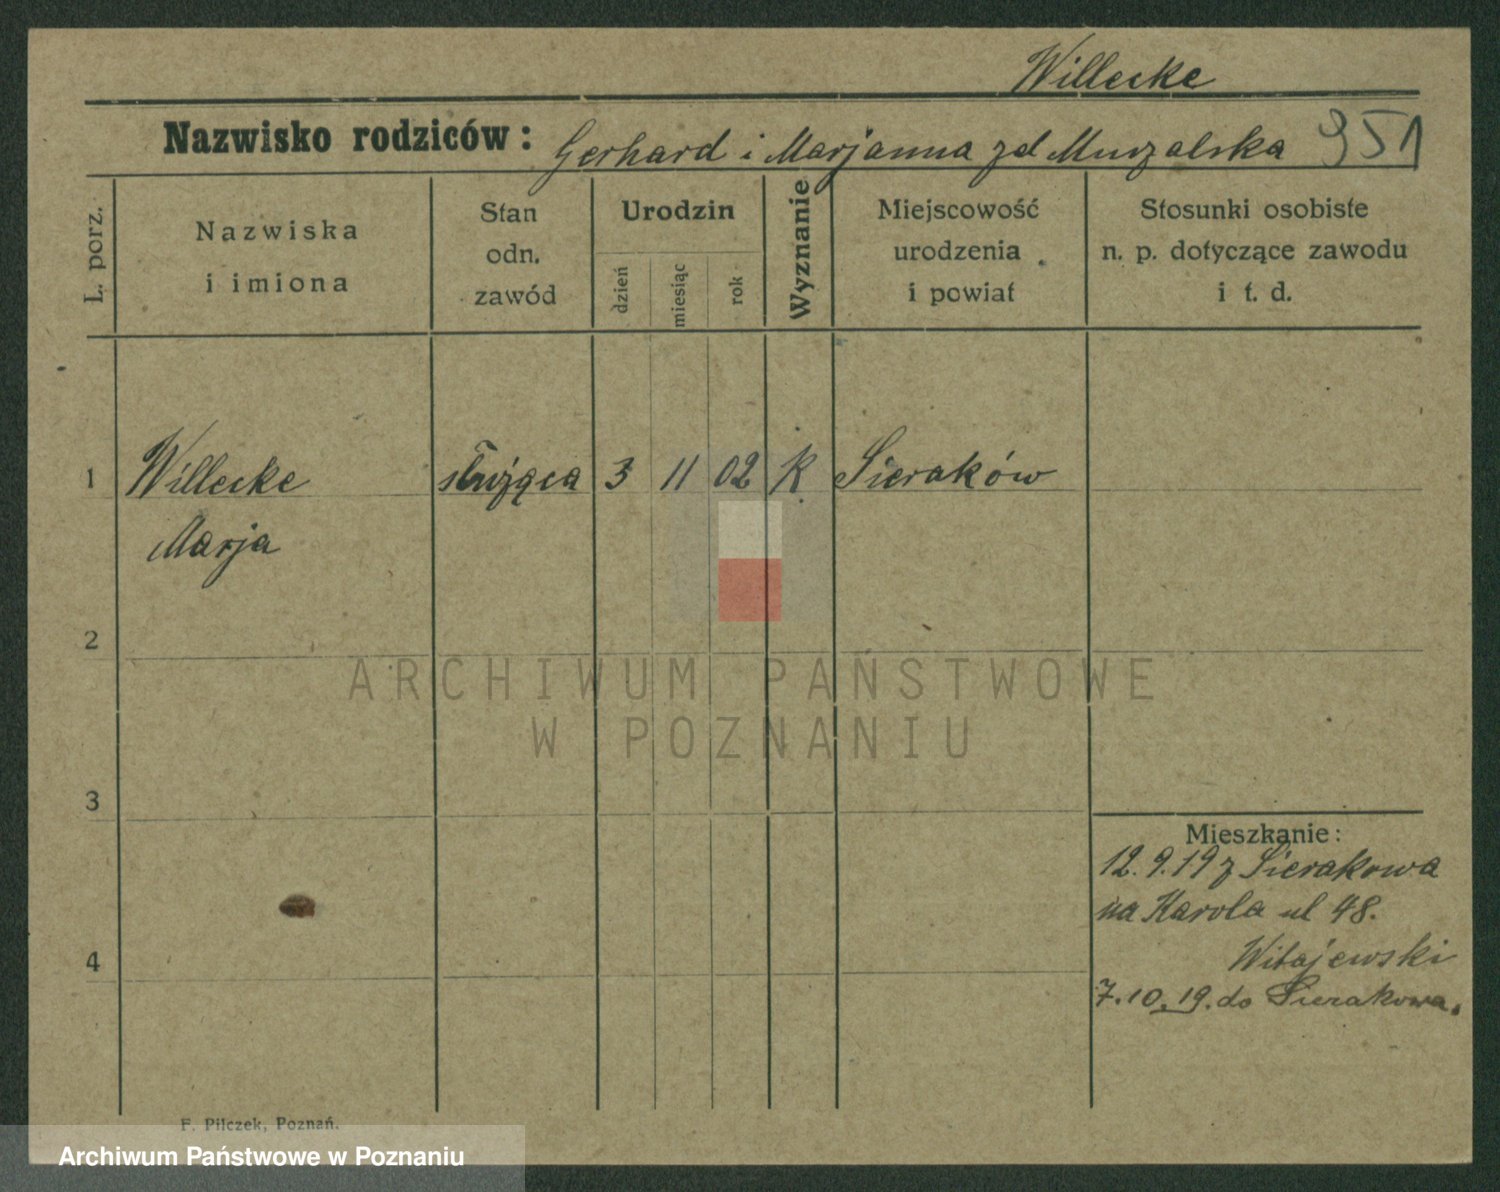 Willecke
Nazwisko rodziców: Gerhard i Marjanna zd Murzalska 951
L. porz.
Nazwiska
i imiona
Stan
odn.
zawód
Urodzin
dzień
miesiąc
rok
Wyznanie
Miejscowość
urodzenia
i powiat
Stosunki osobiste
n. p. dotyczące zawodu
i t. d.
1 Willecke służąca 3 11 02 K Sieraków
Marja
2
3
4
Mieszkanie:
12.9.19 z Sierakowa
na Karola ul 48.
Witajewski
7.10.19. do Sierakowa.
F. Pilczek, Poznań.
ARCHIWUM PAŃSTWOWE
W POZNANIU
Archiwum Państwowe w Poznaniu